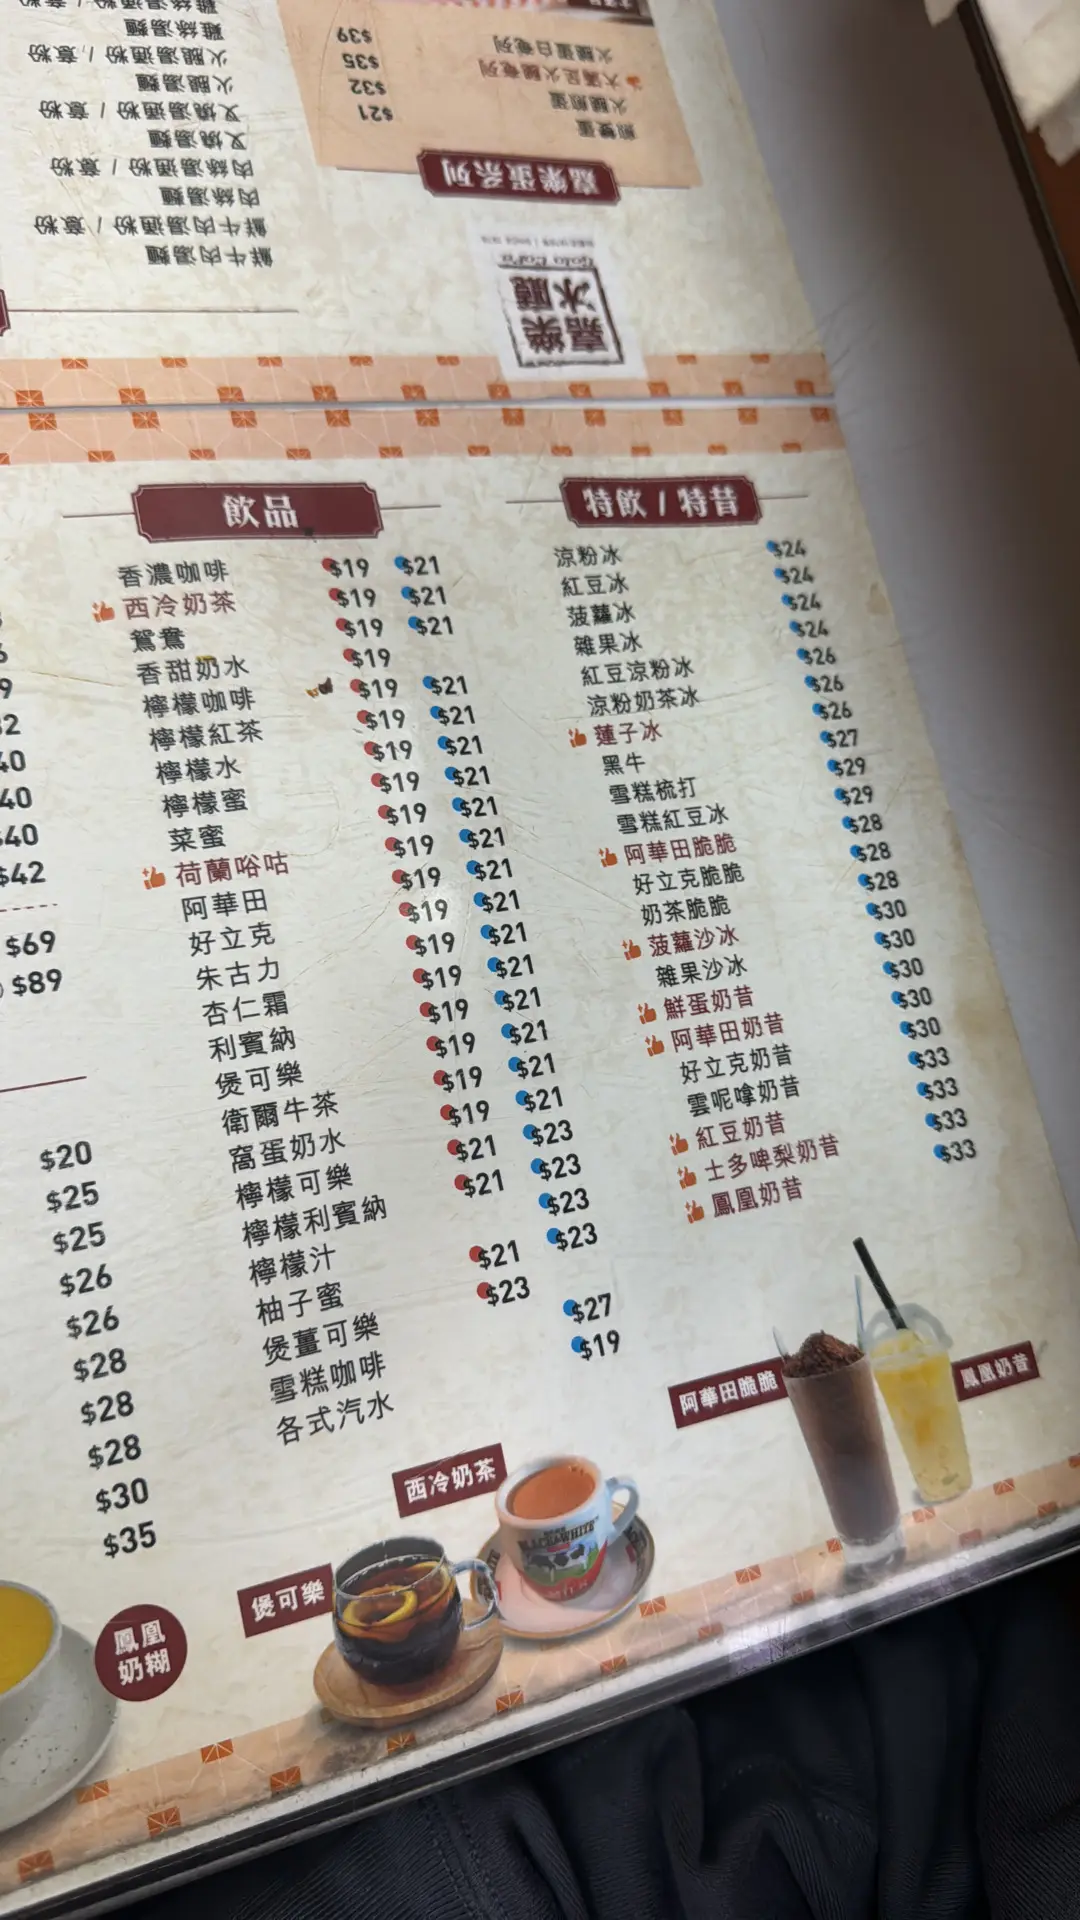 嘉樂
冰廳
嘉樂蛋系列
煎雙蛋 $21
火腿煎蛋 $32
大滿足火腿奄列 $35
火腿蛋白奄列 $39
鮮牛肉湯麵
鮮牛肉湯通粉 / 意粉
肉絲湯麵
肉絲湯通粉 / 意粉
叉燒湯麵
叉燒湯通粉 / 意粉
火腿湯麵
火腿湯通粉 / 意粉
雞絲湯麵
雞絲湯通粉 / 意粉
$42
$69
$89
$20
$25
$25
$26
$26
$28
$28
$28
$30
$35
鳳凰
奶糊
飲品
香濃咖啡 $19 $21
西冷奶茶 $19 $21
鴛鴦 $19 $21
香甜奶水 $19
檸檬咖啡 $19 $21
檸檬紅茶 $19 $21
檸檬水 $19 $21
檸檬蜜 $19 $21
菜蜜 $19 $21
荷蘭唂咕 $19 $21
阿華田 $19 $21
好立克 $19 $21
朱古力 $19 $21
杏仁霜 $19 $21
利賓納 $19 $21
煲可樂 $19 $21
衛爾牛茶 $19 $21
窩蛋奶水 $19 $21
檸檬可樂 $21 $23
檸檬利賓納 $21 $23
檸檬汁 $23
柚子蜜 $21 $23
煲薑可樂 $23
雪糕咖啡 $27
各式汽水 $19
特飲 / 特昔
涼粉冰 $24
紅豆冰 $24
菠蘿冰 $24
雜果冰 $24
紅豆涼粉冰 $26
涼粉奶茶冰 $26
蓮子冰 $26
黑牛 $27
雪糕梳打 $29
雪糕紅豆冰 $29
阿華田脆脆 $28
好立克脆脆 $28
奶茶脆脆 $28
菠蘿沙冰 $30
雜果沙冰 $30
鮮蛋奶昔 $30
阿華田奶昔 $30
好立克奶昔 $30
雲呢拿奶昔 $33
紅豆奶昔 $33
士多啤梨奶昔 $33
鳳凰奶昔 $33
阿華田脆脆
鳳凰奶昔
西冷奶茶
BLACK&WHITE
煲可樂